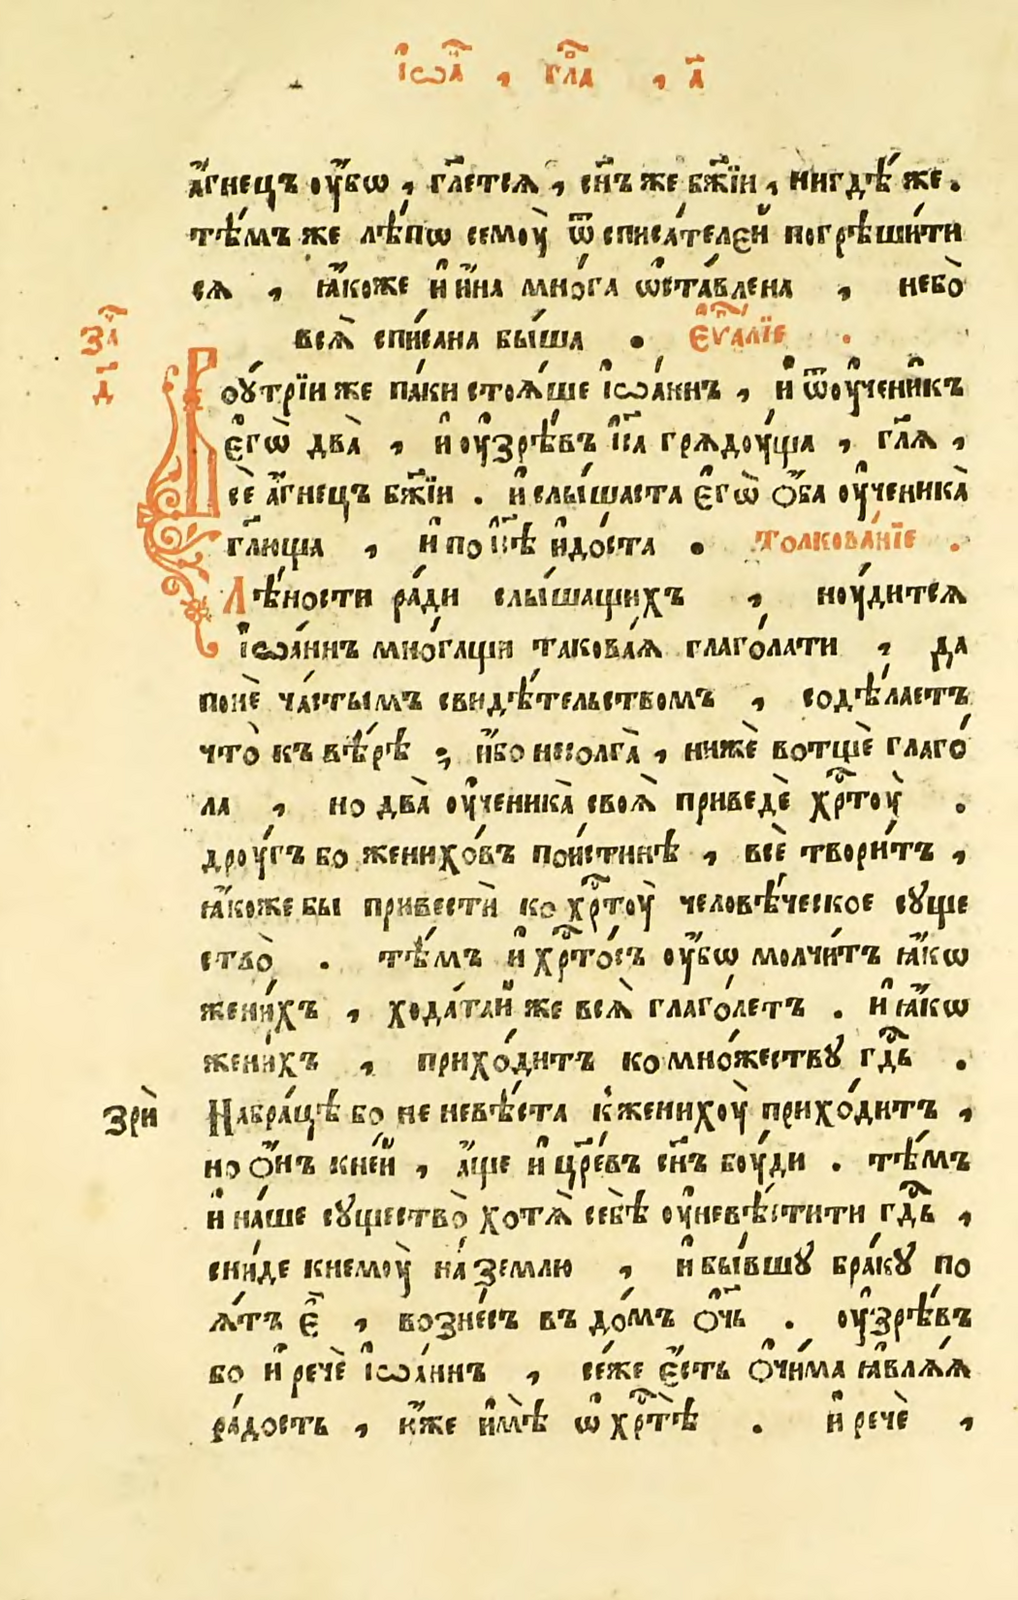 і҆ѡа҃ , гл҃а , а҃
а҆́гнецъ ᲂу҆́бѡ , гл҃етсѧ , сн҃ъ же бж҃їи , нигдѣ́ же .
тѣ́мъ же лѣ́пѡ семоу̀ ѿ списа́телєй погрѣши́ти
сѧ , ꙗ҆́коже и҆ и҆́на мно́га ѡ҆ста́влена , небо̀
всѧ̀ списана бы́ша . є҆ѵа́лїе .
за҃
д҃
Воу́трїи же па́ки стоѧ́ше і҆ѡа́ннъ , и҆ ѿ оу҆чени́къ
є҆гѡ̀ два̀ , и҆ оу҆зрѣ́въ і҆с҃а грѧдоу́ща , гл҃ѧ ,
сѐ а҆́гнецъ бж҃їи . и҆ слы́шаста є҆гѡ̀ ѻ҆́ба оу҆ченика̀
гл҃юща , и҆ по і҆с҃ѣ и҆до́ста . толкова́нїе .
Лѣ́ности ра́ди слы́шащихъ , ноу́дитсѧ
і҆ѡа́ннъ мно́гащи такова́ѧ глаго́лати , да
понѐ ча́стымъ свидѣ́тельствомъ , содѣ́лаетъ
что̀ къ вѣ́рѣ , и҆́бо несолга̀ , нижѐ вотщѐ глаго́
ла , но два̀ оу҆ченика̀ своѧ̀ приведѐ хрⷭ҇тоу̀ .
дроу́гъ бо женихо́въ пои́стинѣ , всѐ твори́тъ ,
ꙗ҆́коже бы привестѝ ко хрⷭ҇тоу̀ человѣ́ческое суще
ство̀ . тѣ́мъ и҆ хрⷭ҇то́съ оу҆́бѡ молчи́тъ ꙗ҆́кѡ
жени́хъ , хода́тай же всѧ̀ глаго́летъ . и҆ ꙗ҆́кѡ
жени́хъ , прихо́дитъ ко мно́жеству гдⷭ҇ь .
зрѝ
На бра́цѣ бо не невѣ́ста к҆ женихоу̀ прихо́дитъ ,
но ѻ҆́нъ к не́й , а҆́ще и҆ цр҃евъ сн҃ъ боу́ди . тѣ́мъ
и҆ на́ше существо̀ хотѧ̀ себѣ̀ оу҆невѣ́стити гдⷭ҇ь ,
сни́де к немоу̀ на́ землю , и҆ бы́вшу бра́ку по
ѧ́тъ є҆̀ , вознѐсъ въ до́мъ ѻ҆́ч҃ь . оу҆зрѣ́въ
бо и҆ речѐ і҆ѡа́ннъ , се́же є҆́сть ѻ҆чи́ма ꙗ҆влѧ́ѧ
ра́дость , ю҆́же и҆мѣ̀ ѡ҆ хрⷭ҇тѣ̀ . и҆ речѐ ,